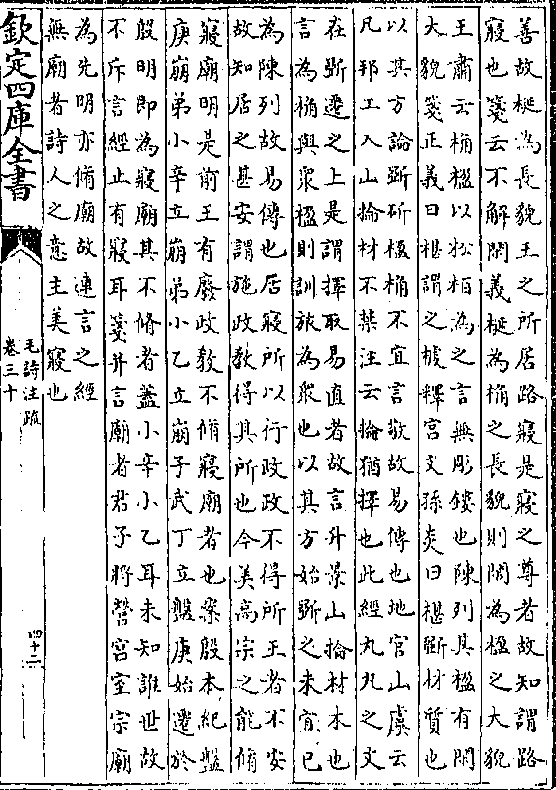 善故梴為長貌王之所居路寢是寢之尊者故知謂路
寢也箋云不解閑義梴為桷之長貌則閑為楹之大貌
王肅云桷楹以松柏為之言無彫鏤也陳列其楹有閑
大貌箋正義曰椹謂之榩釋宮文孫炎曰椹斲材質也
以其方論斲斫楹桷不宜言敬故易傳也地官山虞云
凡邦工入山掄材不禁注云掄猶擇也此經丸丸之文
在斲遷之上是謂擇取易直者故言升景山掄材木也
言為桷與衆楹則訓旅為衆也以其方始斲之未宜已
為陳列故易傳也居寢所以行政政不得所王者不安
故知居之甚安謂施政教得其所也今美高宗之能脩
寢廟明是前王有廢政教不脩寢廟者也案殷本紀盤
庚崩弟小辛立崩弟小乙立崩子武丁立盤庚始遷於
殷明即為寢廟其不脩者蓋小辛小乙耳未知誰世故
不斥言經止有寢耳箋并言廟者君子將營宮室宗廟
為先明亦脩廟故連言之經
無廟者詩人之意主美寢也
欽定四庫全書
毛詩注疏
卷三十
四十二